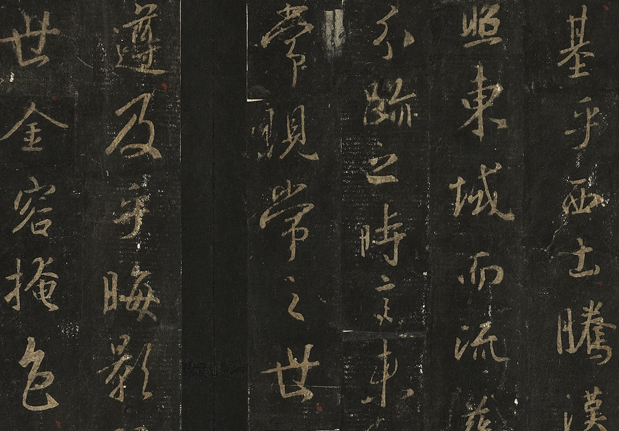 基乎西土騰漢
照東域而流慈
分跡之時言未
常現常之世
遵及乎晦影
世金容掩色